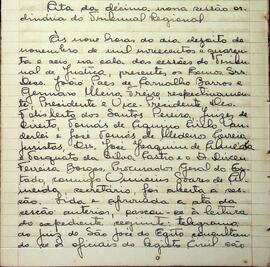 Ata da décima nona sessão or-
dinária do Tribunal Regional
Ás nove horas do dia dezoito de
novembro de mil novecentos e quaren-
ta e seis na sala das sessões do Tribunal
de Justiça, presentes os Exmos Srs.
Des. João Paes de Carvalho Barros e
Genaro Freire respectivamen-
te, Presidente e Vice-Presidente, Des.
Felisberto dos Santos Pereira, juizes de
Direito, Tomás de Aquino Cirilo Wan-
derlei e José Tomás de Medeiros Correia
juristas, Drs. José Joaquim de Almeida
e Torquato da Silva Castro e o Dr. Dirceu
Ferreira Borges, Procurador Geral do Es-
tado, comigo Soares de Al-
meida, secretário, foi aberta a ses-
são. Lida e aprovada a ata da
sessão anterior, passou-se à leitura
do expediente, seguinte, telegrama
do juiz de São José do Egito consultan-
do se os oficiais do Registo Civil são